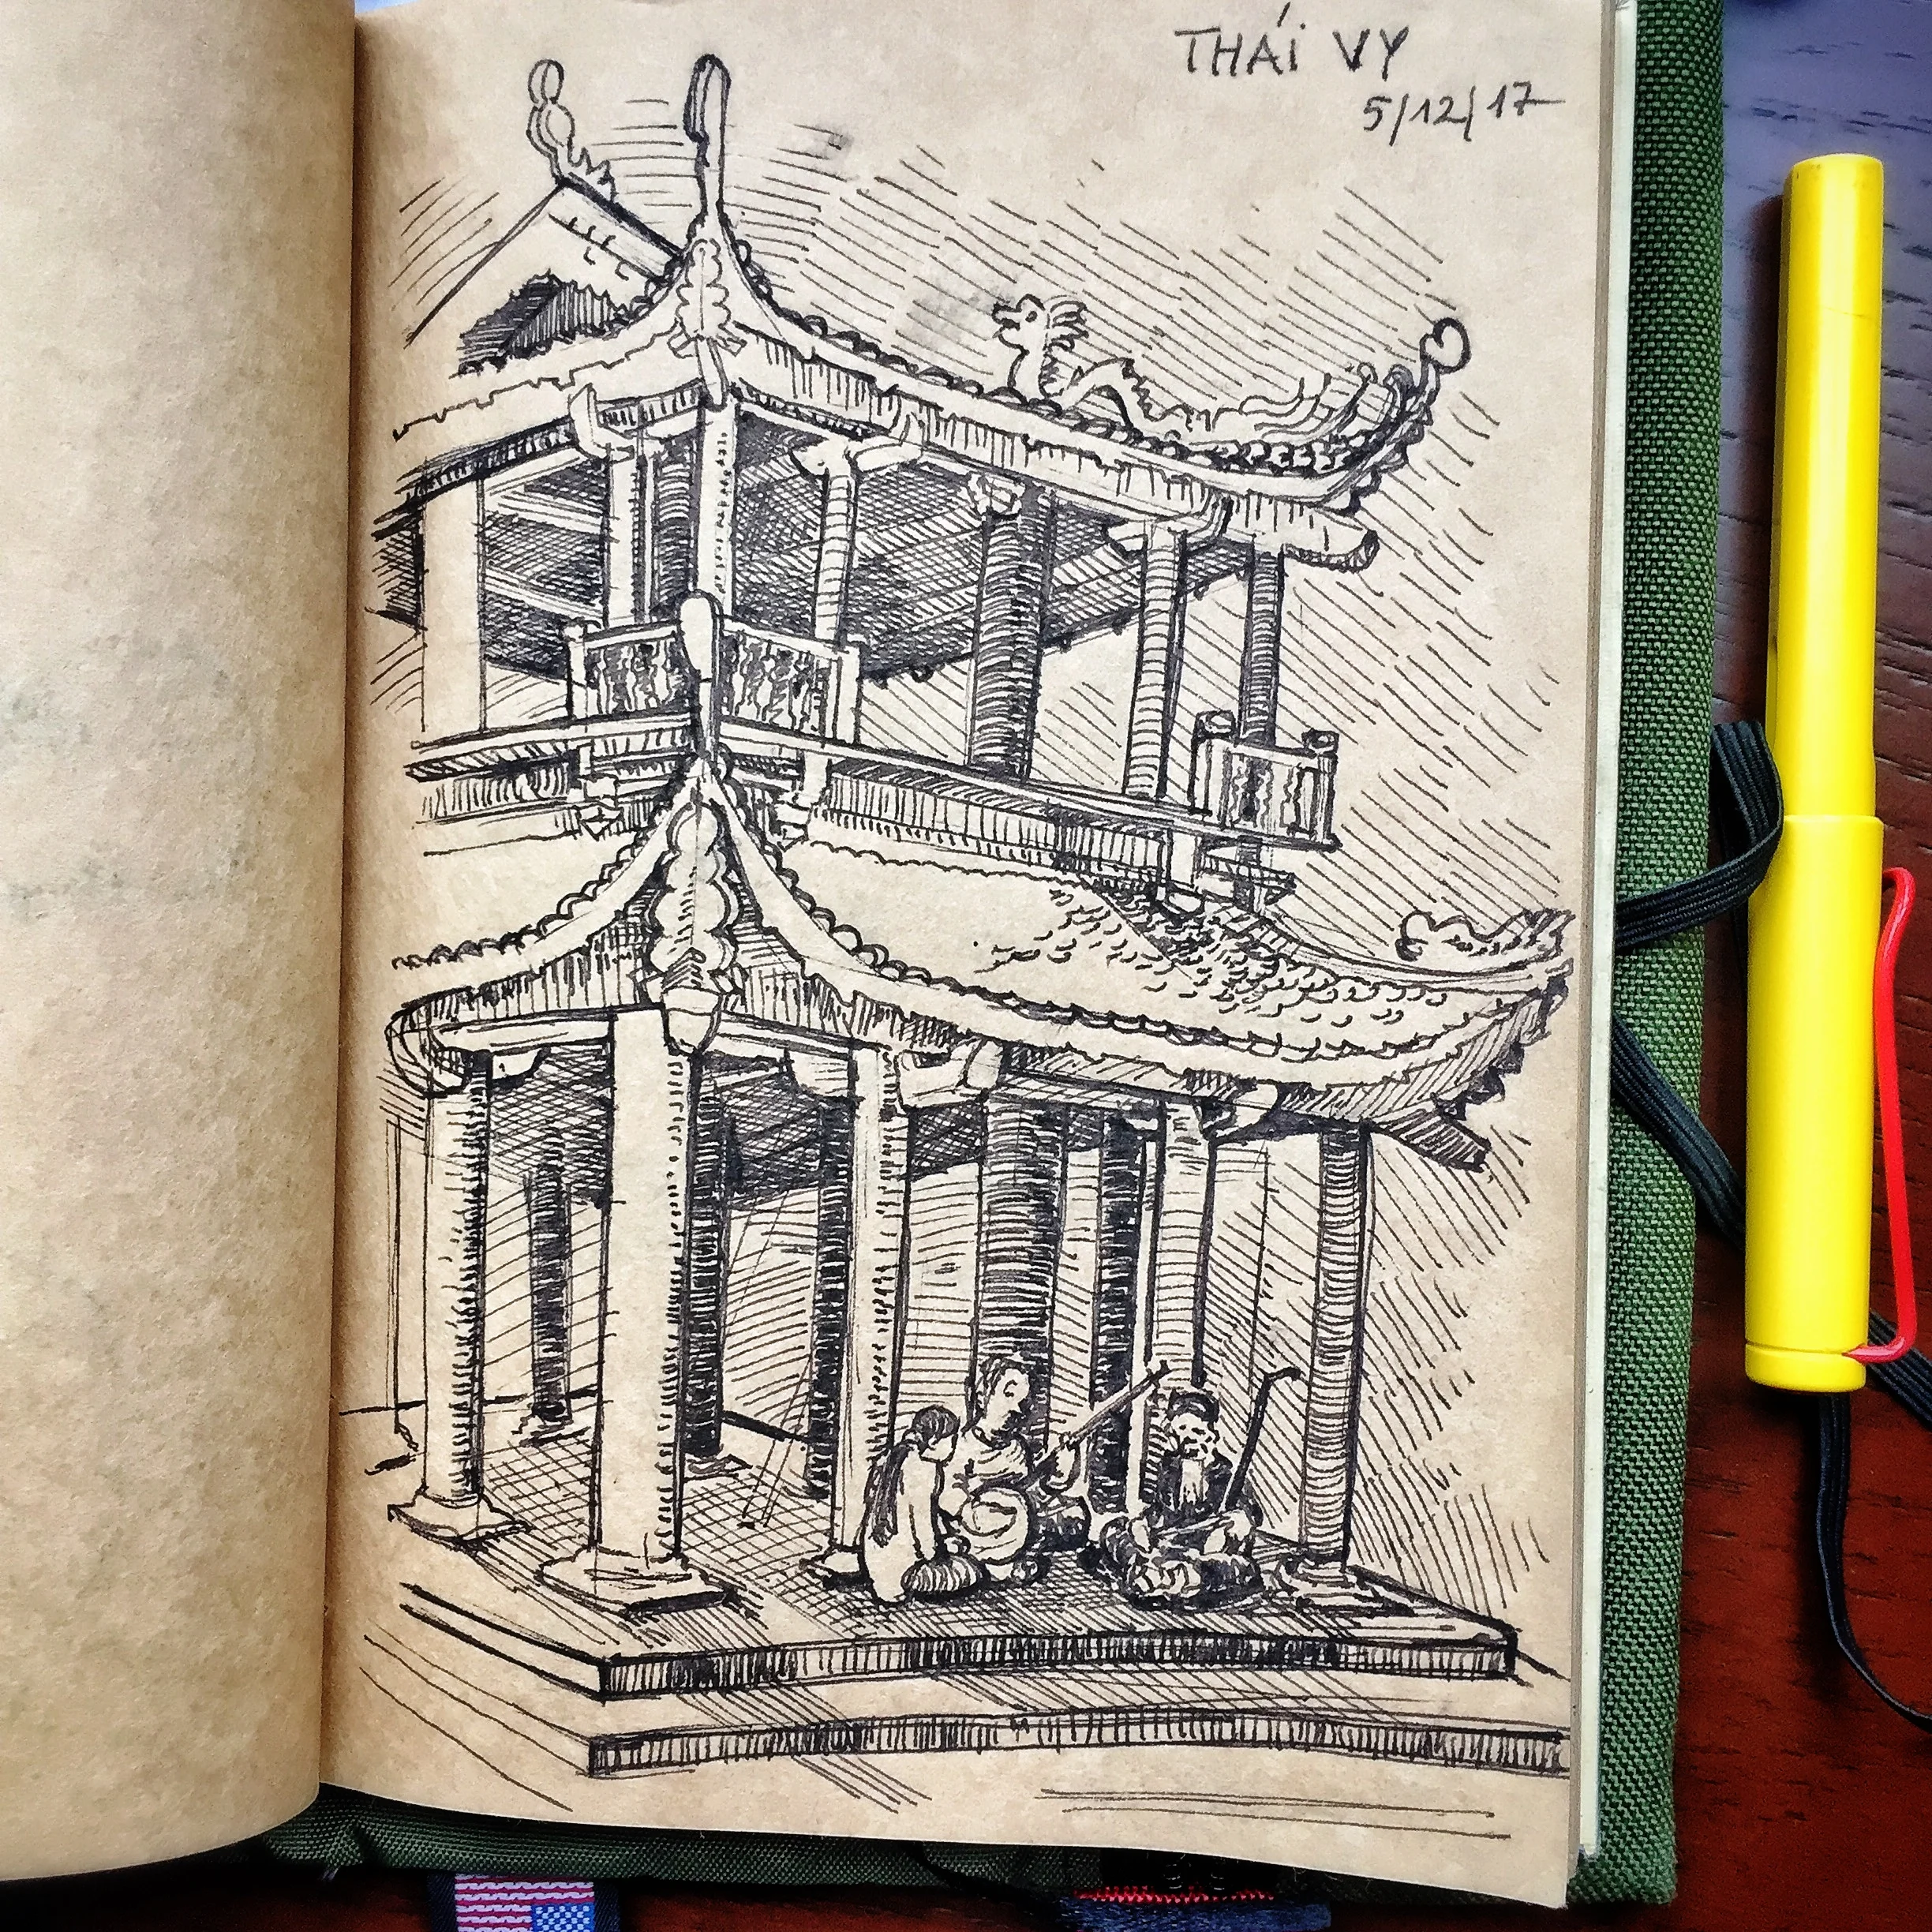 THÁi VY
5/12/17